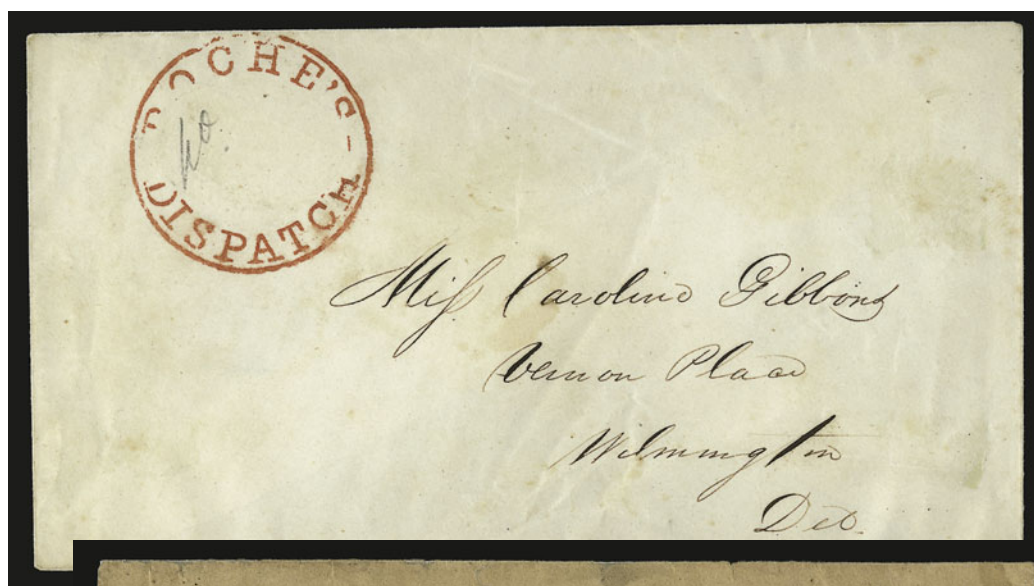 ROCHE'S
DISPATCH
Miss Caroline Gibbons
Vernon Place
Wilmington
Del.